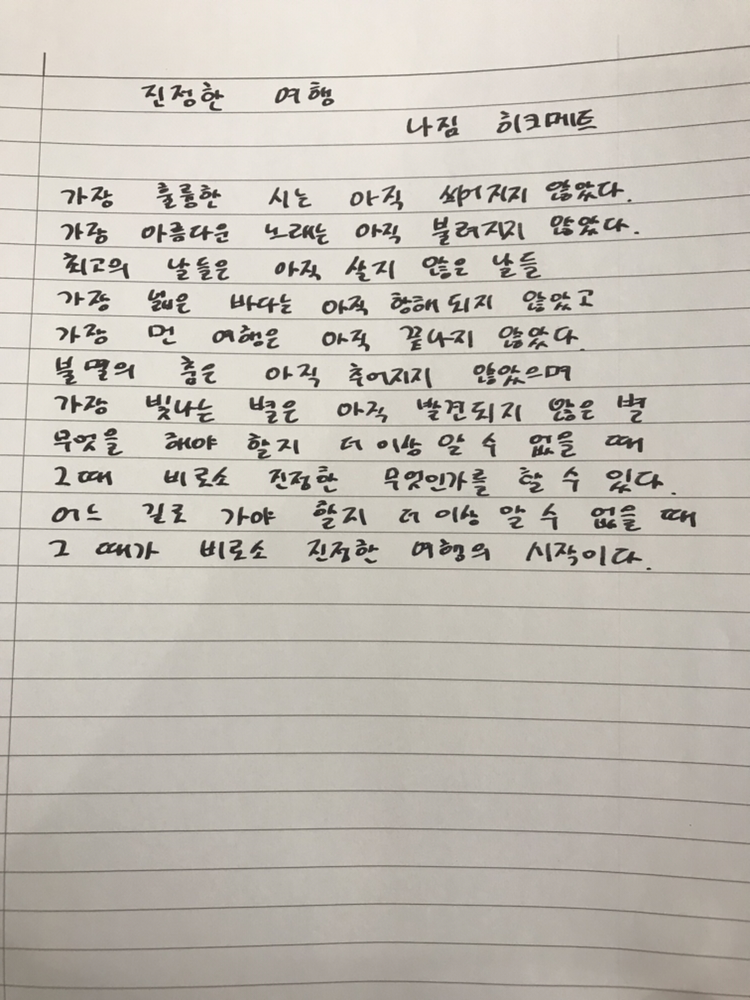 진정한 여행
나짐 히크메트
가장 훌륭한 시는 아직 쓰여지지 않았다.
가장 아름다운 노래는 아직 불려지지 않았다.
최고의 날들은 아직 살지 않은 날들
가장 넓은 바다는 아직 항해되지 않았고
가장 먼 여행은 아직 끝나지 않았다.
불멸의 춤은 아직 추어지지 않았으며
가장 빛나는 별은 아직 발견되지 않은 별
무엇을 해야 할지 더 이상 알 수 없을 때
그때 비로소 진정한 무엇인가를 할 수 있다.
어느 길로 가야 할지 더 이상 알 수 없을 때
그 때가 비로소 진정한 여행의 시작이다.